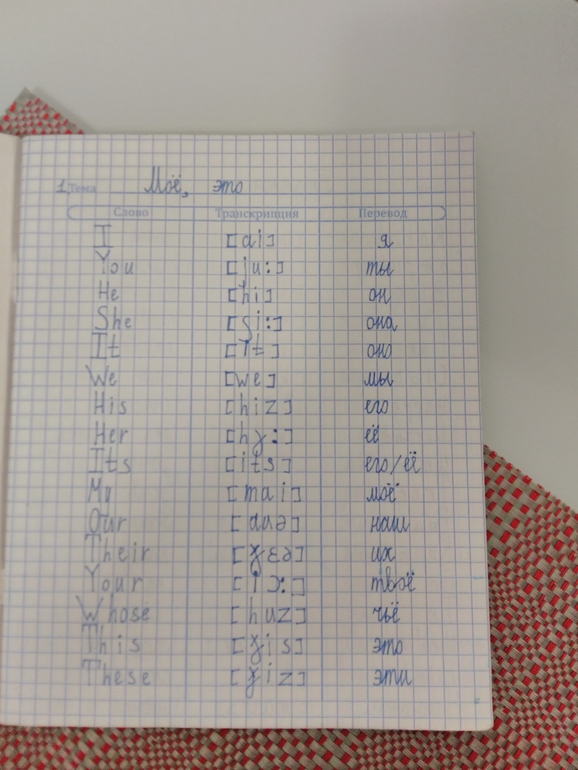 1. Тема Моё, это
Слово Транскрипция Перевод
I [ai] я
You [ju:] ты
He [hi] он
She [ʂi:] она
It [it] оно
We [we] мы
His [hiz] его
Her [hɣ:] её
Its [its] его/её
My [mai] моё
Our [auə] наш
Their [ɣɛə] их
Your [jɔ:] твоё
Whose [huz] чьё
This [ɣis] это
These [ɣiz] эти